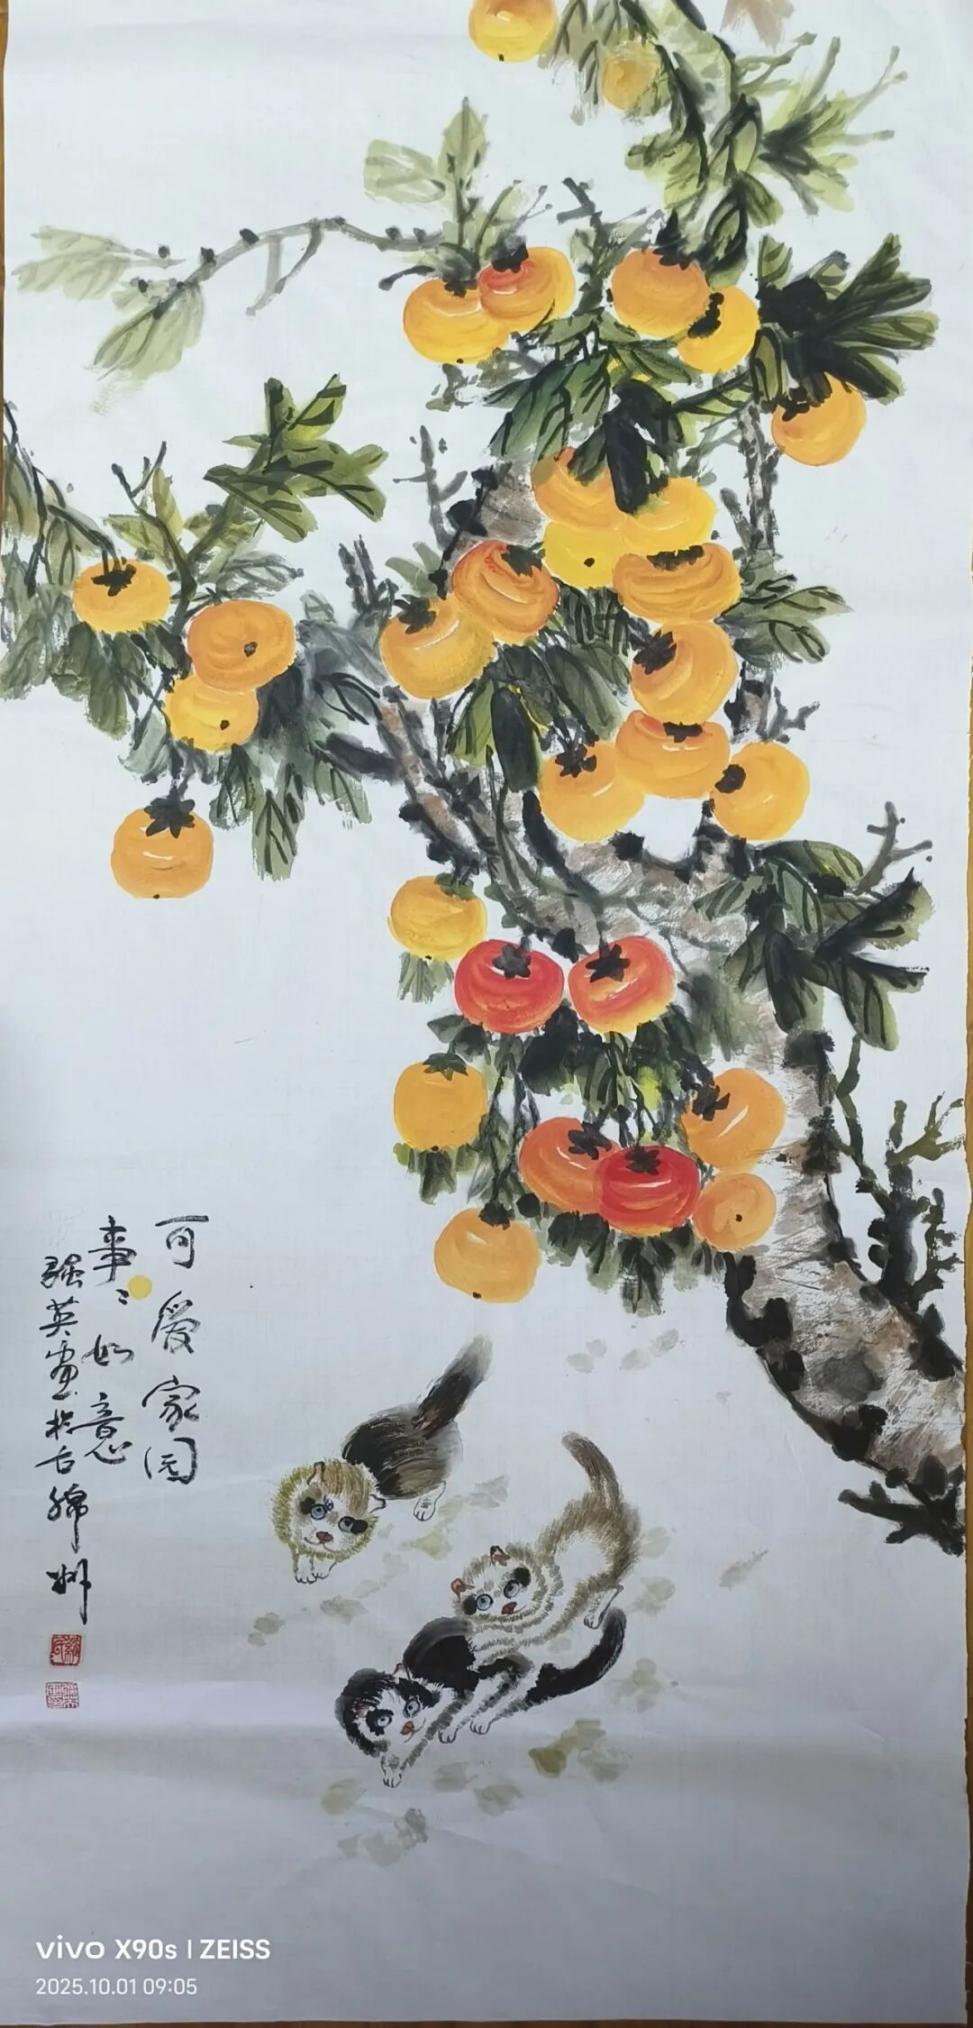 可爱家园
事〻如意
强英画於古绵州
vivo X90s | ZEISS
2025.10.01 09:05